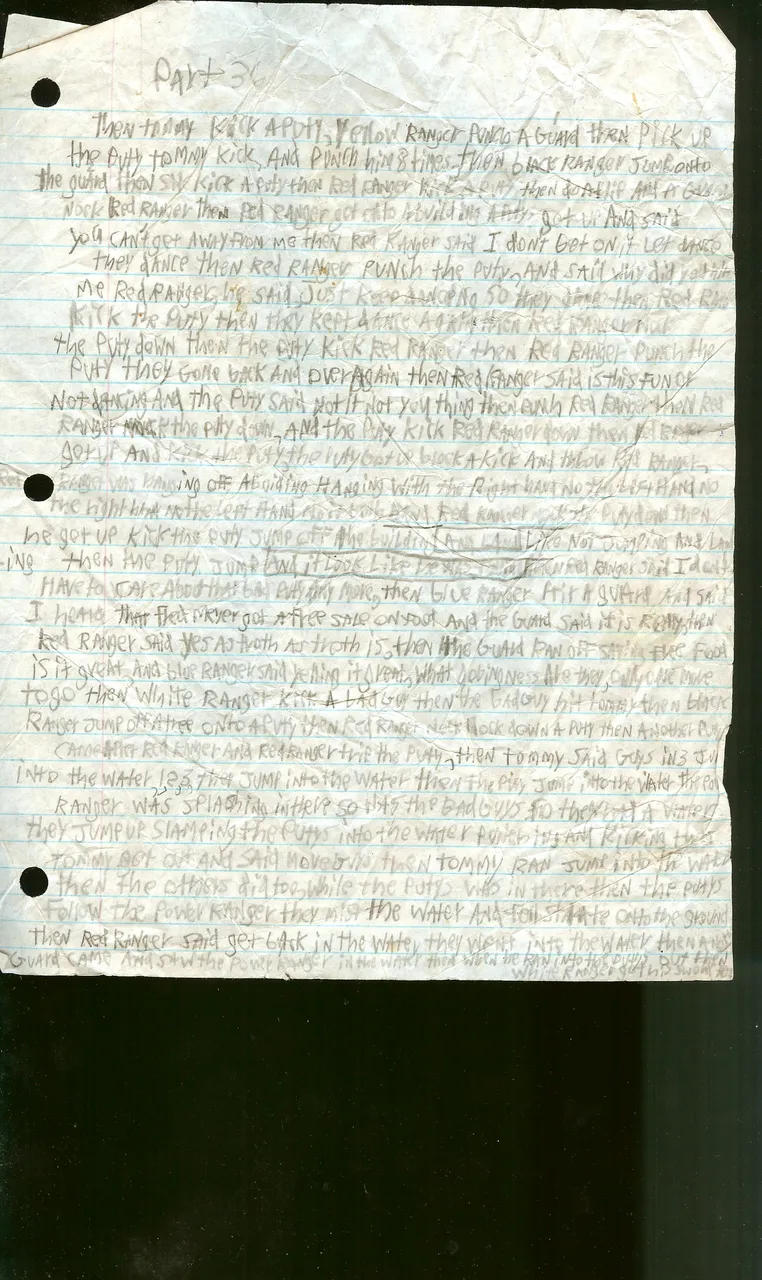 Part 36
then tommy Kick A Puty, Yellow RANGER Punch A Guard then PICK UP
the Puty tommy Kick, And Punch him 8 times. then black RANGER JUMP onto
the guard then Kick A puty then Red RANGER Kick A puty then do A flip And A Guard
Nock Red RANGER then Red RANGER got into A building A Puty got up And said
you CAN't get AWAY FROM me then Red Ranger said I don't bet on it Let dance
they dance then Red RANGER PUNCH the Puty, AND said why did you
me Red RANGER, he said Just Keep dancing So they dance then Red
Kick the Puty then they Kept dance Again then Red RANGER
the Puty down then the Puty Kick Red RANGER then Red RANGER Punch the
Puty they Gone back And over Again then Red RANGER Said is this Fun or
Not dancing And the Puty Said Not It Not you thing then Punch Red RANGER then Red
RANGER the puty down, And the Puty Kick Red RANGER down then Red RANGER
got UP And Kick the Puty, the Puty Got up block A Kick And throw Red RANGER,
Ranger was hanging off A building Hanging With the Right hand No the Left Hand no
the right hand No the left Hand Red Ranger the Puty down then
he get up Kick the puty Jump off the building And Land Like Not Jumping And Land
-ing then the Puty Jump And it Look Like he was then Red Ranger Said I don't
Have to CARE About that bad Puty Any More, then blue RANGER A guard And said
I heard that Fred Meyer got A free sale on food And the Guard Said it is Really, then
Red RANGER Said yes As troth As troth is, then the Guard Ran off saying free Food
is it great, And blue Ranger said yelling it great, What Are they, only one more
to go then White RANGER Kick A bad Guy then the bad Guy hit tommy then black
RANGER JUMP off A tree onto A Puty then Red RANGER Nock down A Puty then Another Puty
Came After Red RANGER And Red RANGER trip the Puty, then tommy Said Guys in 3
INTO the WATER 1,2,3 they JUMP into the Water then the Jump into the Water the
RANGER WAS SPLASHING in there so was the bad Guys So they had A Water
they JUMP UP SLAMPING the PUTYS INTO the Water Punch And Kicking
TOMMY Get out And Said Move Guys then TOMMY RAN JUMP INTO the Water
then the others did too, While the Putys was in there then the putys
Follow the Power RANGER they mist the WATER And onto the Ground
then Red Ranger Said get back in the Water, they Went into the Water then A
Guard CAME And Saw the Power RANGER in the Water then When he RAN into the Putys but then
White Ranger got his sword